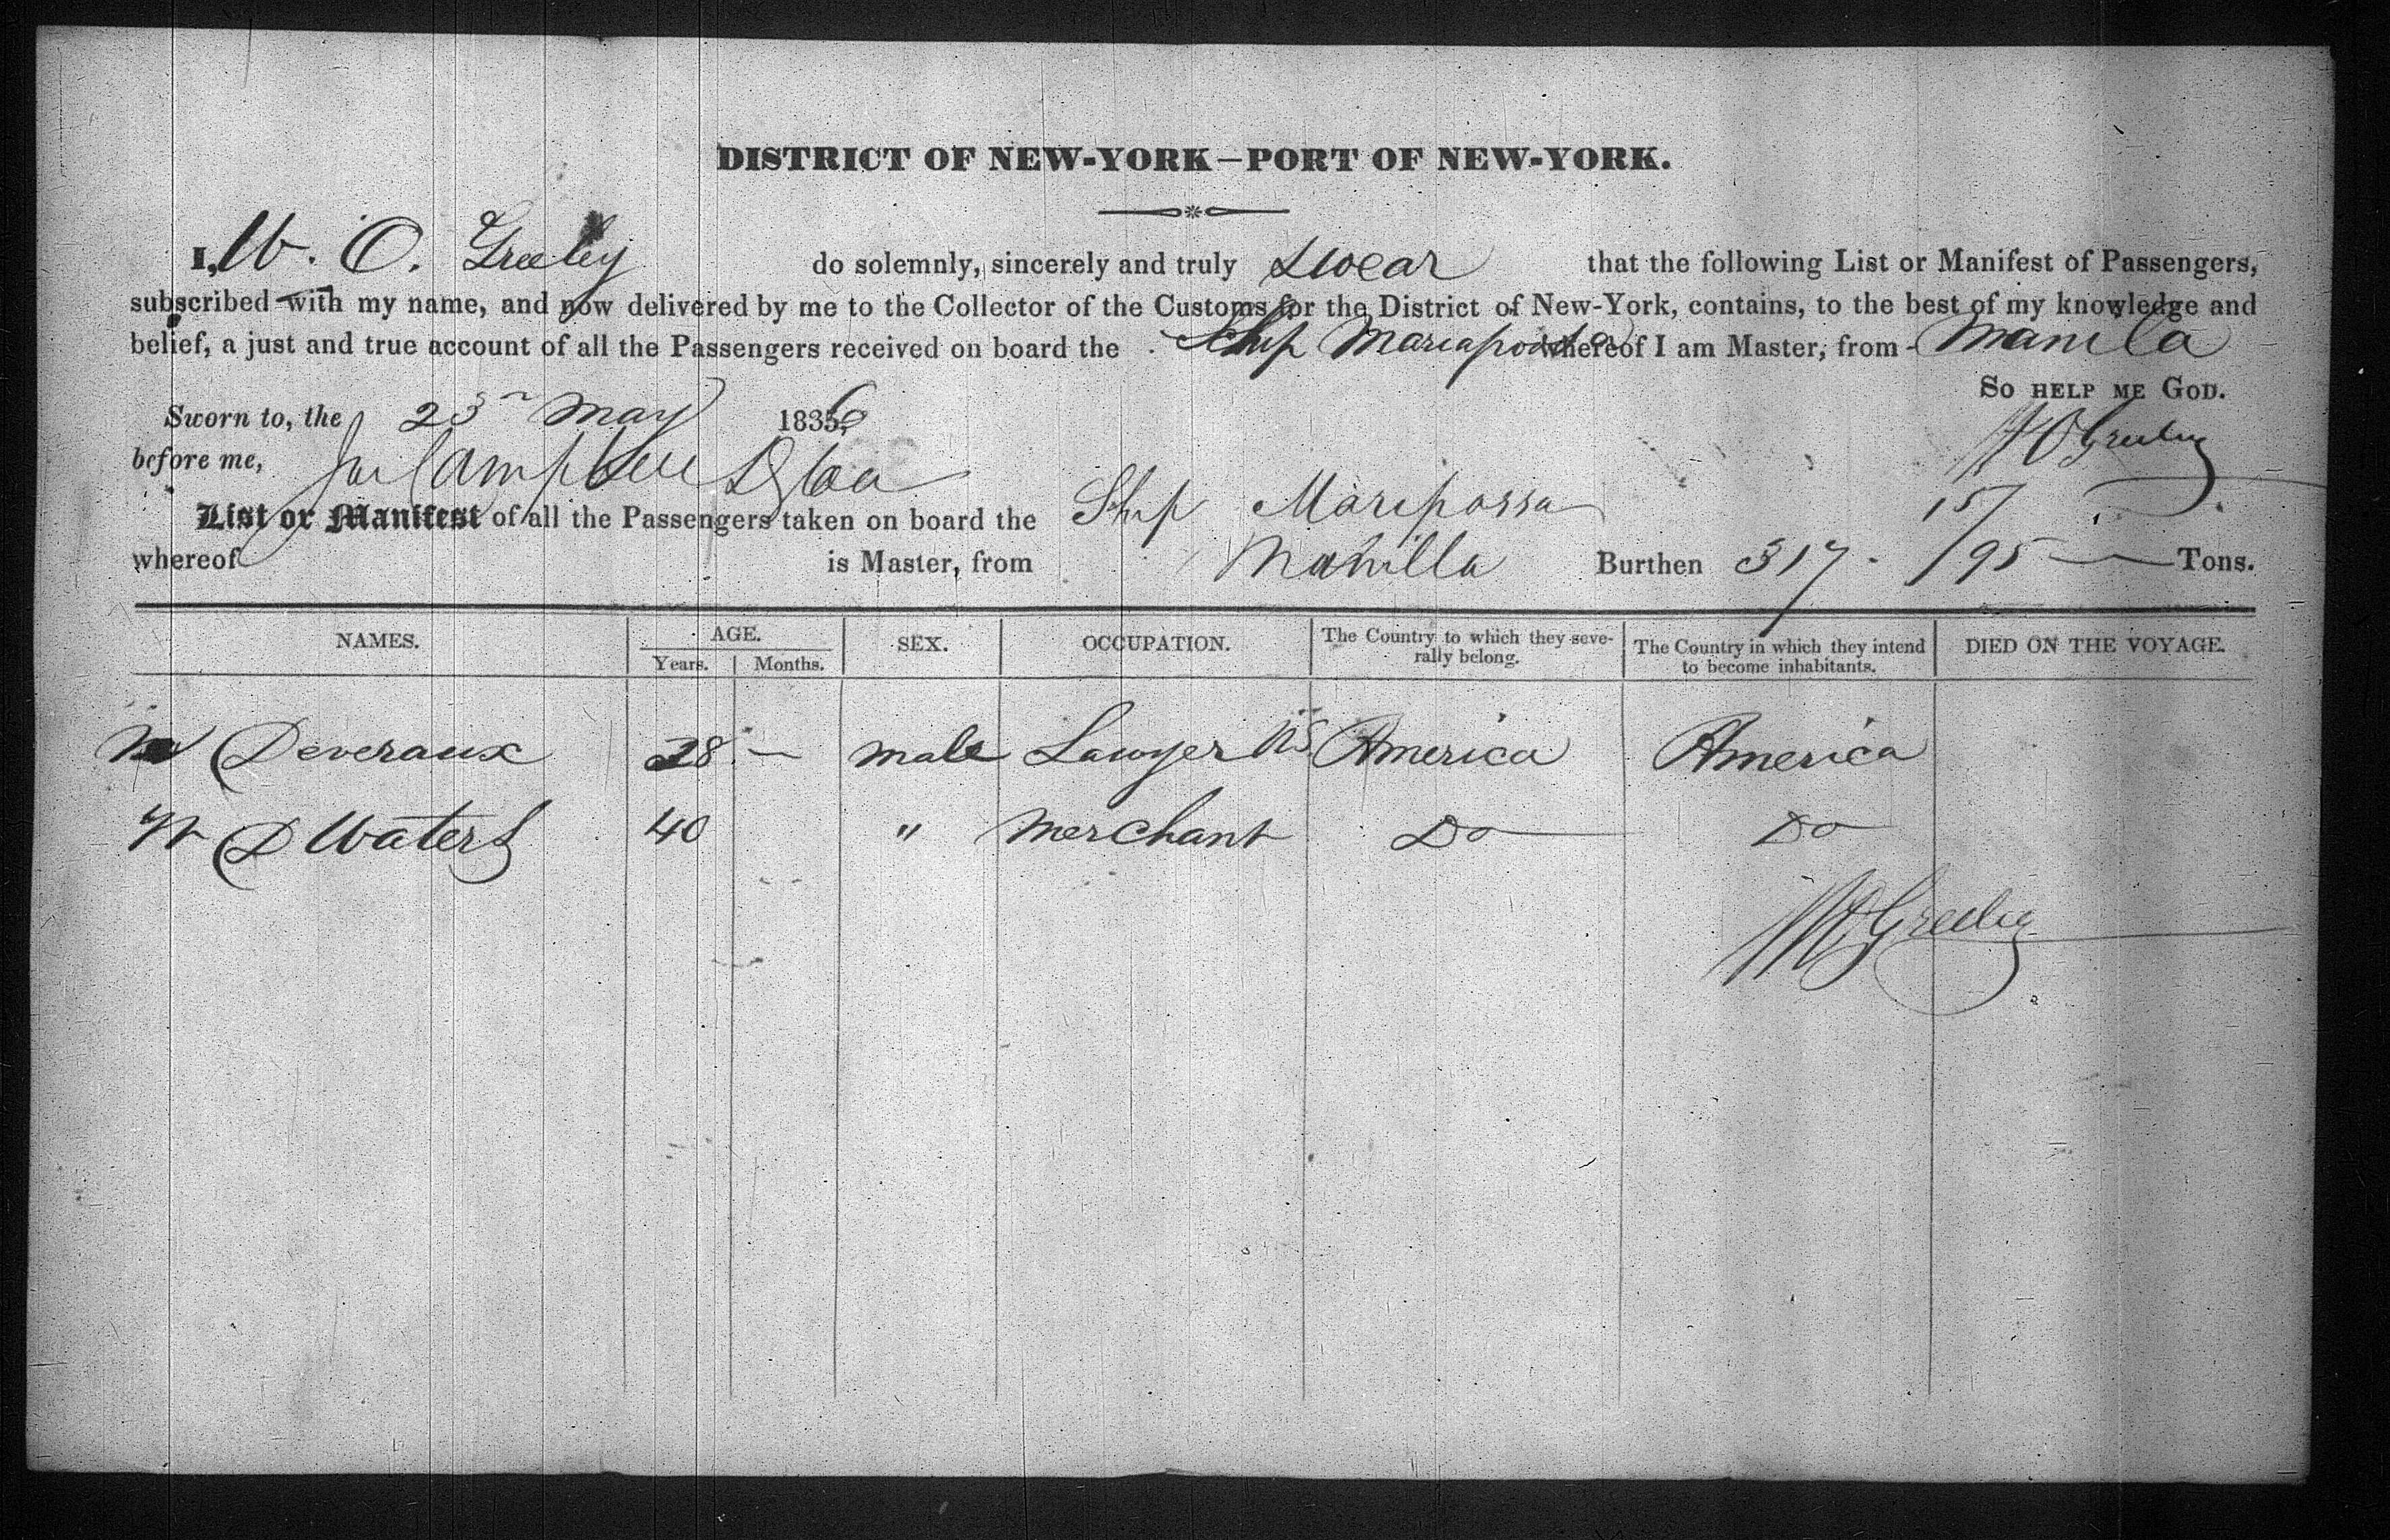 DISTRICT OF NEW-YORK—PORT OF NEW-YORK.
I, W. O. Greeley do solemnly, sincerely and truly Swear that the following List or Manifest of Passengers,
subscribed with my name, and now delivered by me to the Collector of the Customs for the District of New-York, contains, to the best of my knowledge and
belief, a just and true account of all the Passengers received on board the Ship whereof I am Master, from Manila
SO HELP ME GOD.
Sworn to, the 23 May 1836
before me, Campbell
List or Manifest of all the Passengers taken on board the Ship Maripossa
whereof is Master, from Manilla Burthen 317 15/95 Tons.
NAMES. AGE. SEX. OCCUPATION. The Country to which they seve- The Country in which they intend DIED ON THE VOYAGE.
Years. Months. rally belong. to become inhabitants.
Deveraux 28 — male Lawyer US America America
W D Waters 40 " Merchant Do Do
W O Greeley